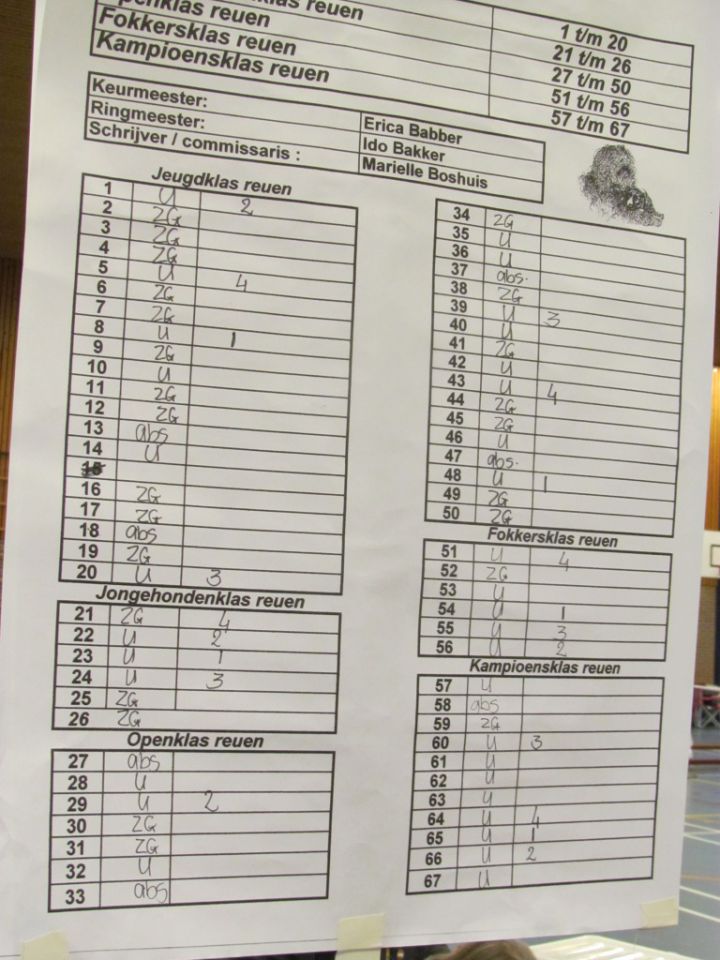 klas reuen 1 t/m 20
reuen 21 t/m 26
Openklas reuen 27 t/m 50
Fokkersklas reuen 51 t/m 56
Kampioensklas reuen 57 t/m 67
Keurmeester: Erica Babber
Ringmeester: Ido Bakker
Schrijver / commissaris : Marielle Boshuis
Jeugdklas reuen
1 U 2
2 ZG
3 ZG
4 ZG
5 U 4
6 ZG
7 ZG
8 U 1
9 ZG
10 U
11 ZG
12 ZG
13 abs
14 U
15
16 ZG
17 ZG
18 abs
19 ZG
20 U 3
Jongehondenklas reuen
21 ZG 4
22 U 2
23 U 1
24 U 3
25 ZG
26 ZG
Openklas reuen
27 abs
28 U
29 U 2
30 ZG
31 ZG
32 U
33 abs
34 ZG
35 U
36 U
37 abs.
38 ZG
39 U 3
40 U
41 ZG
42 U
43 U 4
44 ZG
45 ZG
46 U
47 abs.
48 U 1
49 ZG
50 ZG
Fokkersklas reuen
51 U 4
52 ZG
53 U
54 U 1
55 U 3
56 U 2
Kampioensklas reuen
57 U
58 abs
59 ZG
60 U 3
61 U
62 U
63 U
64 U 4
65 U 1
66 U 2
67 U